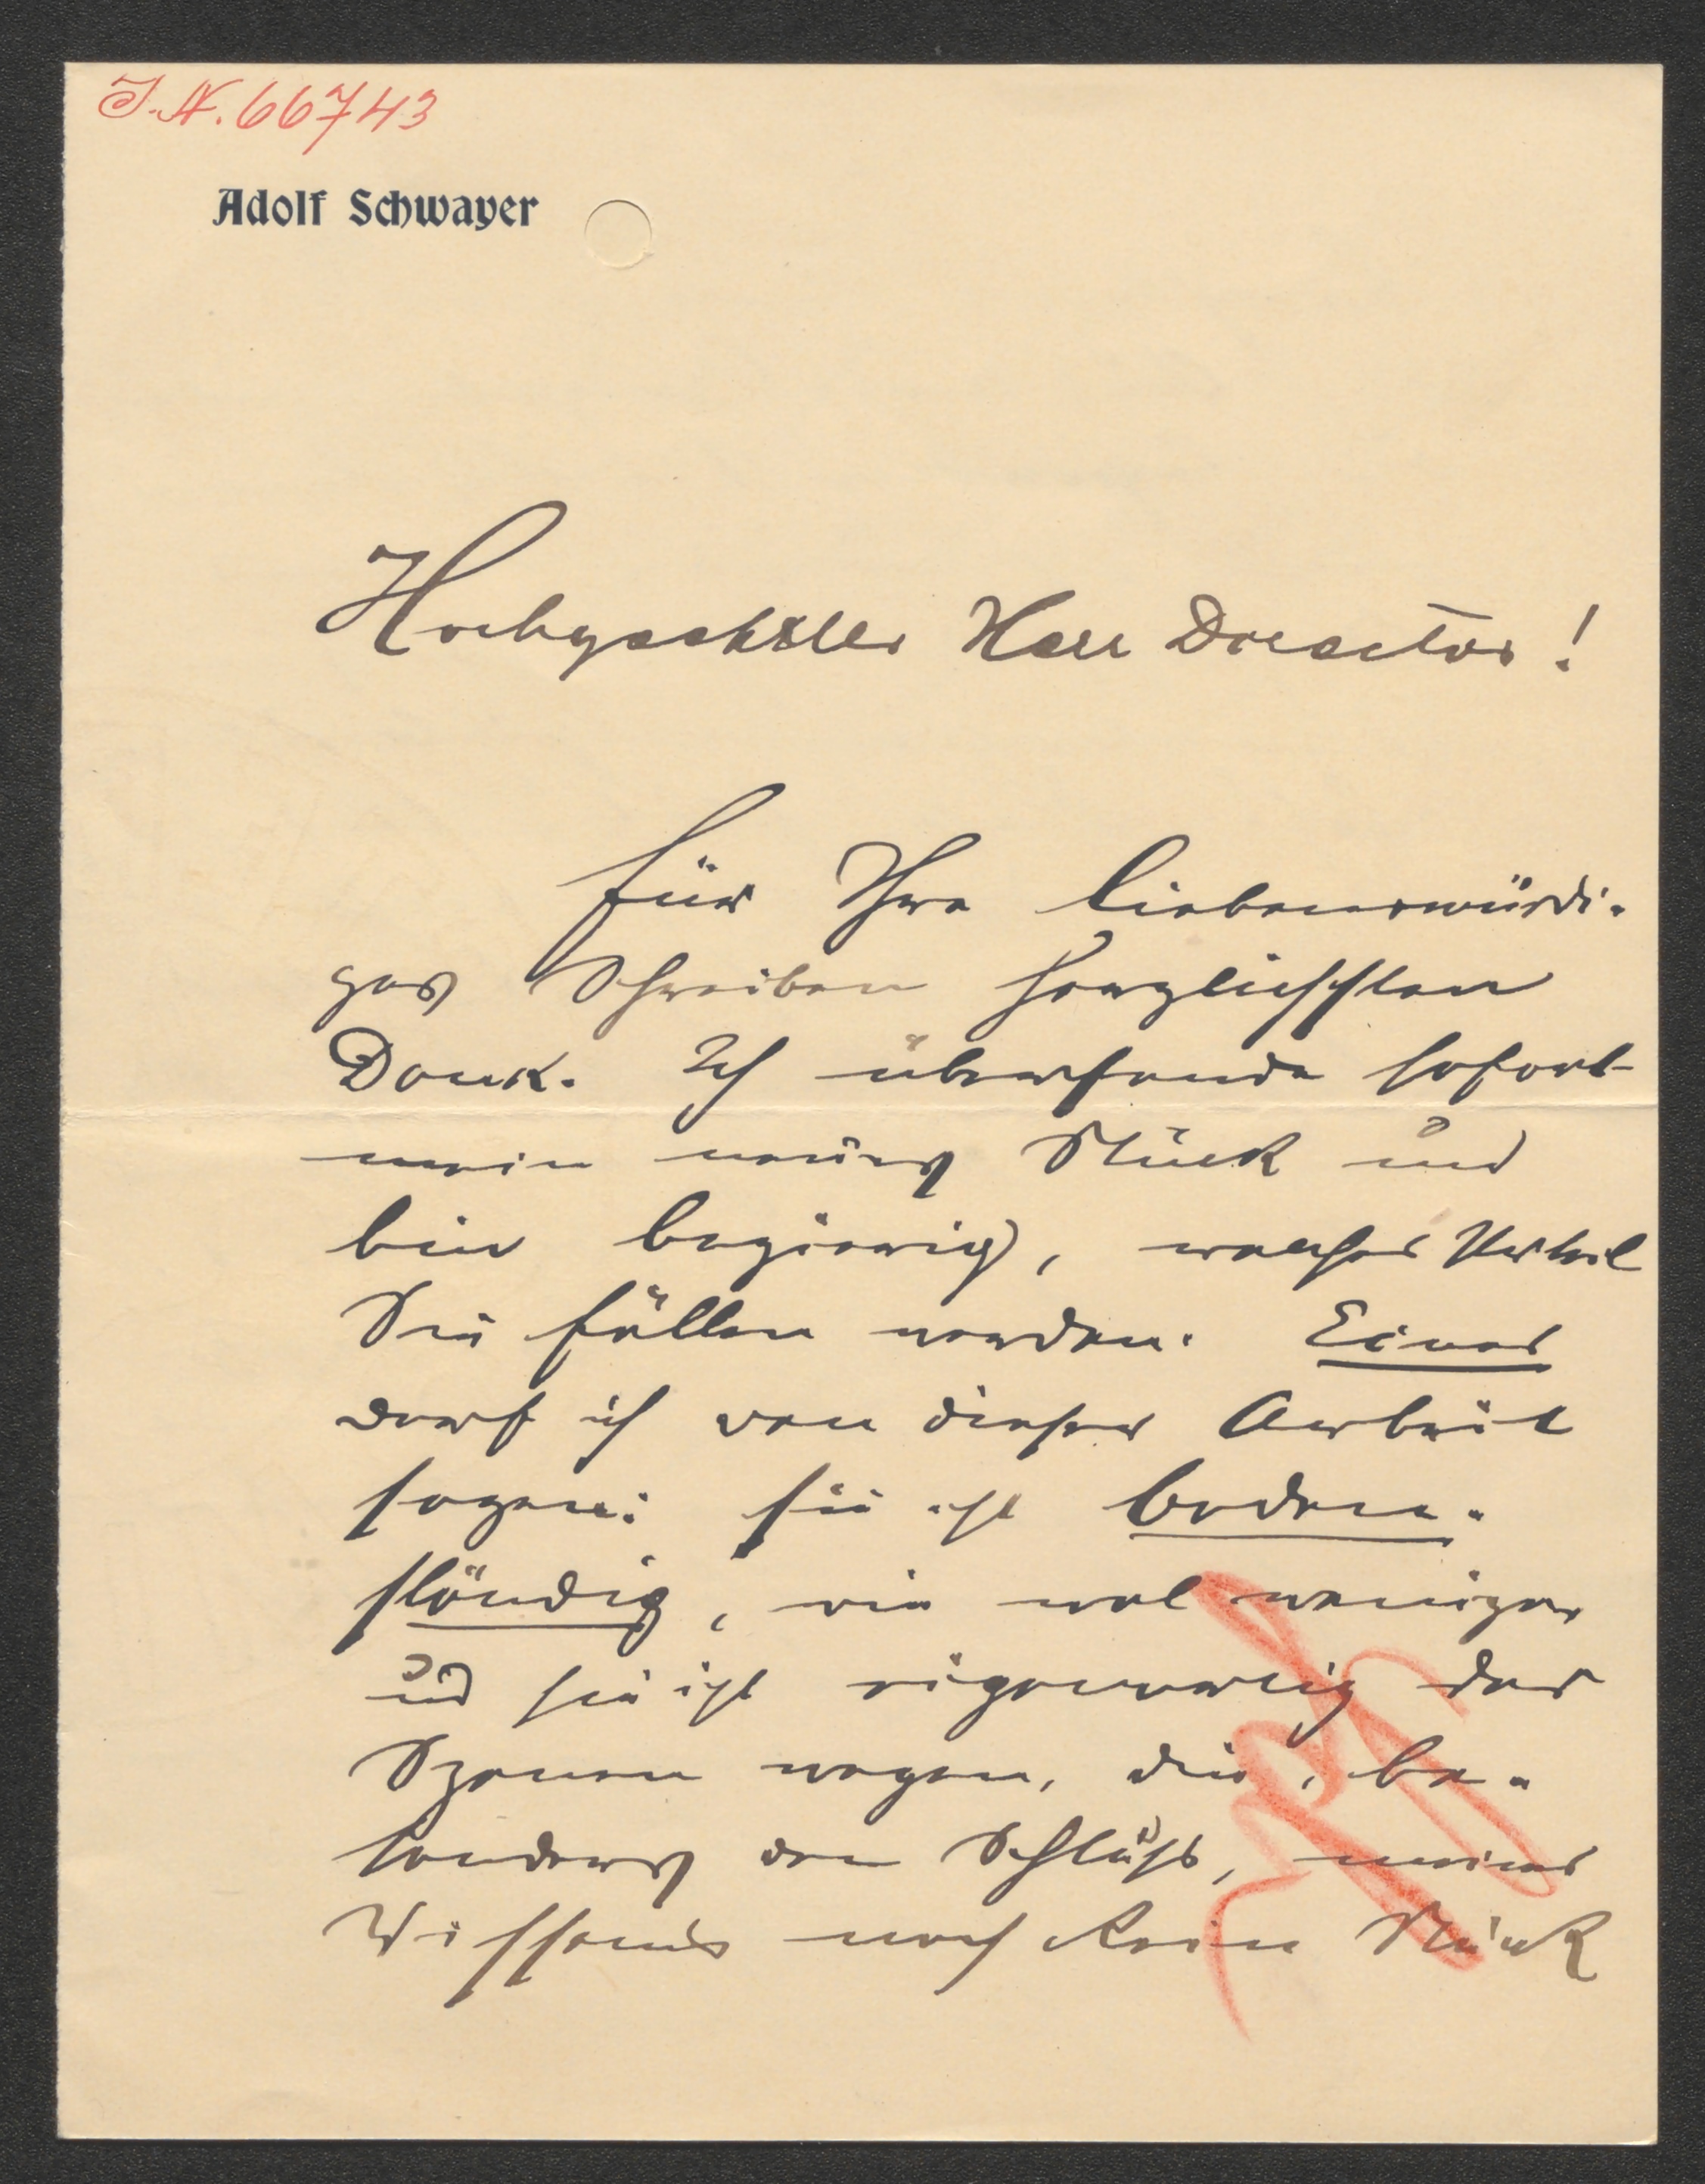 J.N. 66743
Adolf Schwayer
Hochgeehrter Herr Director!
Für Ihre liebenswürdi-
ges Schreiben herzlichsten
Dank. Ich übersende sofort
mein neues Stück und
bin begierig, welches Urteil
Sie fällen werden. Eines
darf ich von dieser Arbeit
sagen: sie ist boden-
ständig, wie wol wenige
und sie ist eigenartig der
Szenen wegen, die, be-
sonders den Schluß, meines
Wissens noch kein Stück